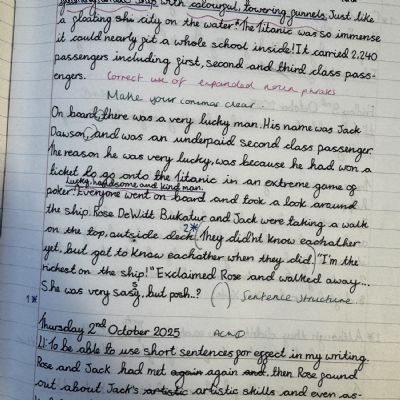 ship with colourful, towering funnels. Just like
a floating city on the water! The Titanic was so immense
it could nearly fit a whole school inside! It carried 2,240
passengers including first, second and third class pass-
engers. Correct use of expanded noun phrases
Make your commas clear.
On board, there was a very lucky man. His name was Jack
Dawson, and was an underpaid second class passenger.
The reason he was very lucky, was because he had won a
ticket to go onto the Titanic in an extreme game of
Lucky, handsome and kind man.
poker! Everyone went on board and took a look around
the ship. Rose DeWitt Bukatur and Jack were taking a walk
2*
on the top, outside deck. They did'nt know eachather
yet, but got to know eachather when they did. "I'm the
richest on the ship!" Exclaimed Rose and walked away...
s
1* She was very sasy, but posh..? ( ) Sentence structure
Thursday 2nd October 2025
LI: To be able to use short sentences for effect in my writing.
Rose and Jack had met again again and, then Rose found
out about Jack's artistic artistic skills and even as-